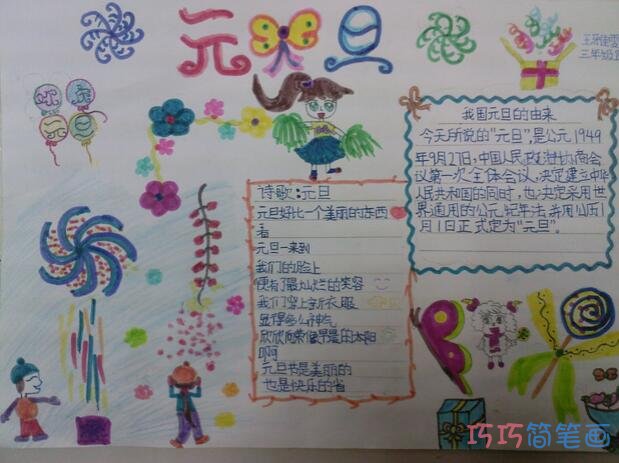 元旦
三年级
欢庆
元旦
我国元旦的由来
今天所说的"元旦",是公元1949
年9月27日,中国人民政治协商会
议第一次全体会议,决定建立中华
人民共和国的同时,也决定采用世
界通用的公元纪年法,并用公历1月
1日正式定为"元旦"。
诗歌:元旦
元旦好比一个美丽的东西
看
元旦一来到
我们的脸上
便有了最灿烂的笑容
我们穿上新衣服
显得多么神气
欣欣向荣像早晨的太阳
啊
元旦节是美丽的
也是快乐的
巧巧简笔画